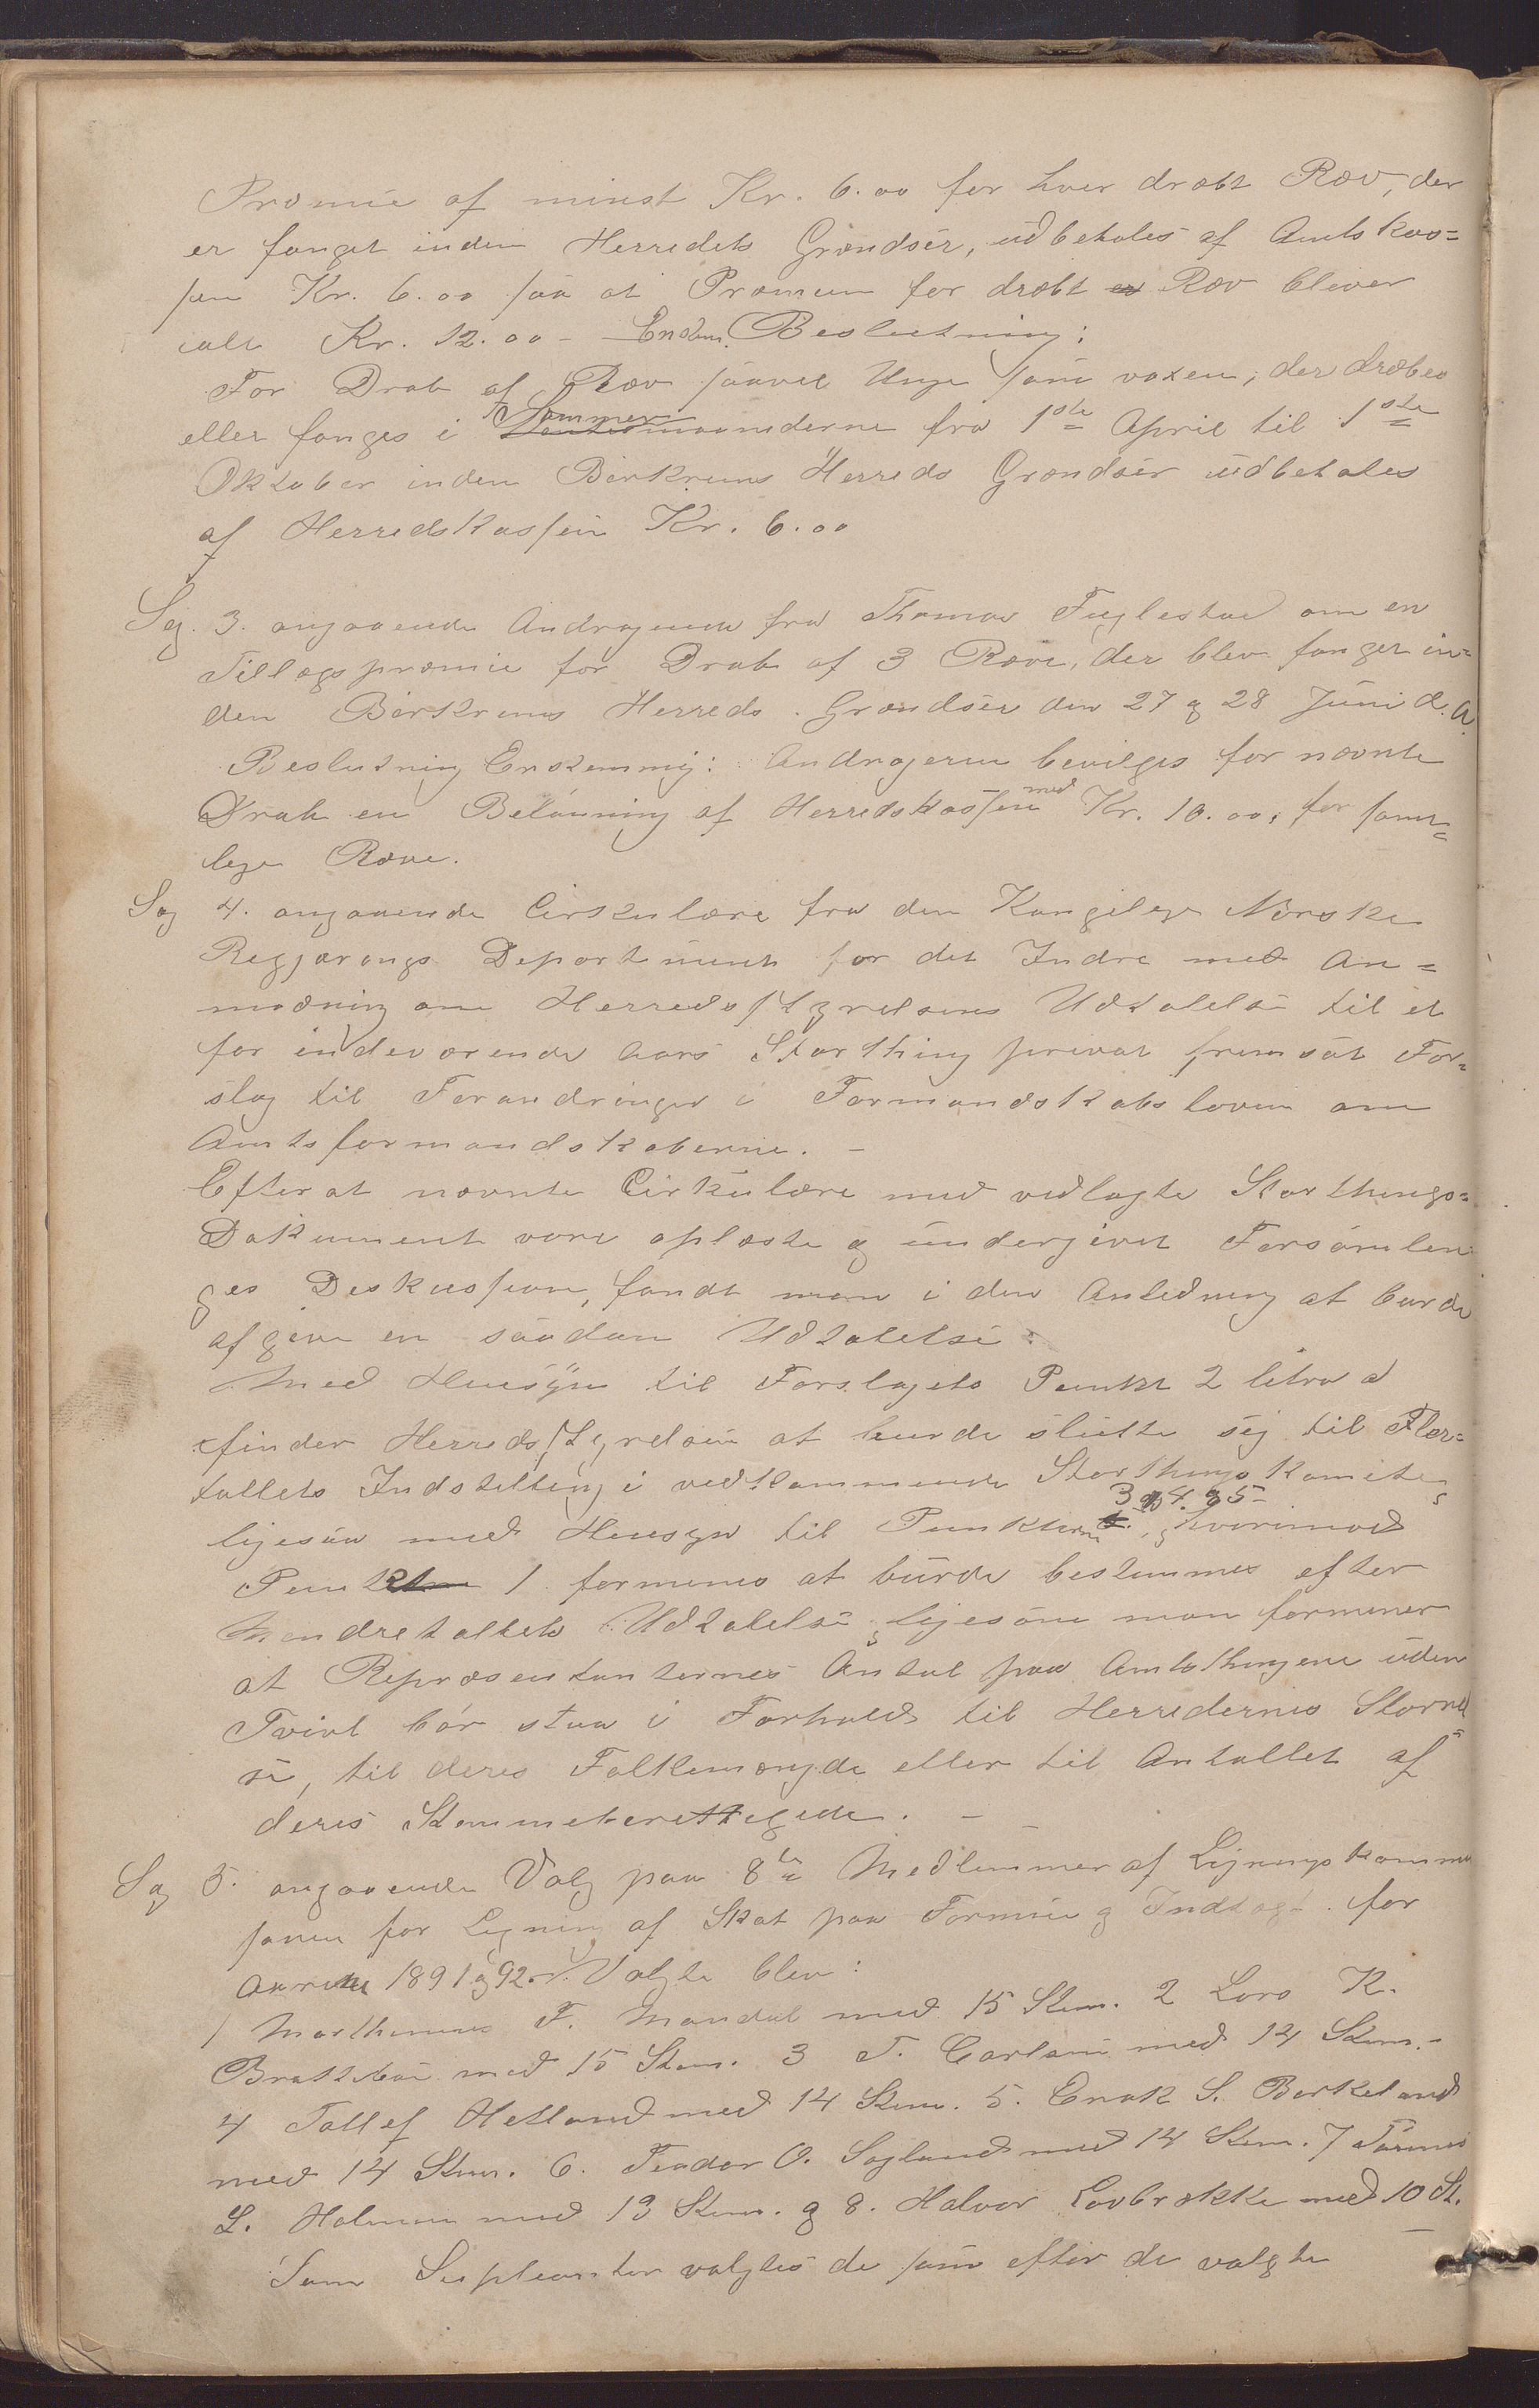 Præmie af minst Kr. 6.00 for hver dræbt Ræv, der
er fanget inden Herredets Grændser, udbetales af Amtskas=
sen Kr. 6.00 saa at Præmien for dræbt Ræv bliver
ialt Kr. 12.00 - Enstem. Beslutning:
For Drab af Ræv saavel Unge som voxen, der dræbes
eller fanges i Sommermaanederne fra 1ste April til 1ste
Oktober inden Birkrems Herreds Grændser udbetales
af Herredskassen Kr. 6.00
Sag. 3. angaaende Andragende fra Thomas Fuglestad om en
Tillægspræmie for Drab af 3 Ræve, der blev fanget in=
den Birkrems Herreds Grændser den 27 og 28 Juni d. A.
Beslutning Enstemmig: Andrageren bevilges for nævnte
Drab en Belønning af Herredskassen med Kr. 10.00, for samt=
lige Ræve.
Sag 4. angaaende Cirkulære fra den Kongelige Norske
Regjærings Departement for det Indre med An=
modning om Herredsstyrelsens Udtalelse til et
for indeværende Aars Storthing privat fremsat For=
slag til Forandringer i Formandskabsloven om
Amtsformandskaberne. -
Efterat nævnte Cirkulære med vedlagte Storthings=
Dokument vare oplæste og undergivet Forsamlin
ges Deskussion, fandt man i den Anledning at burde
afgive en saadan Udtalelse:
Med Hensyn til Forslagets Punkt 2 litra d
finder Herredsstyrelsen at burde slutte sig til Fler=
tallets Indstilling i vedkommende Storthingskomite,
ligesaa med Hensyn til Punkterne 3 og 4. og 5, hvorimod
Punkt 1 formenes at burde bestemmes efter
Mindretallets Udtalelse, ligesom man formener
at Repræsentanternes Antal paa Amtsthingene uden
Tvivl bør staa i Forhold til Herredernes Størrel
se, til deres Folkemængde eller til Antallet af
deres Stemmeberettigede. -
Sag 5. angaaende Valg paa 8te Medlemmer af Ligningskommi
sonen for Ligning af Skat paa Formue og Indtægt for
Aarene 1891 og 92. Valgte blev:
1 Marthinus T. Mandal med 15 Stem. 2 Lars K.
Bratteboe med 15 Stem. 3 T. Carlsen med 14 Stem. -
4 Tollef Hetland med 14 Stem. 5. Enok S. Birkeland
med 14 Stem. 6. Teodor O. Sagland med 14 Stem. 7 Tønnes
L. Holmen med 13 Stem. og 8. Halvor Lovbrække med 10 St.
Som Supleanter valgtes de som efter de valgte